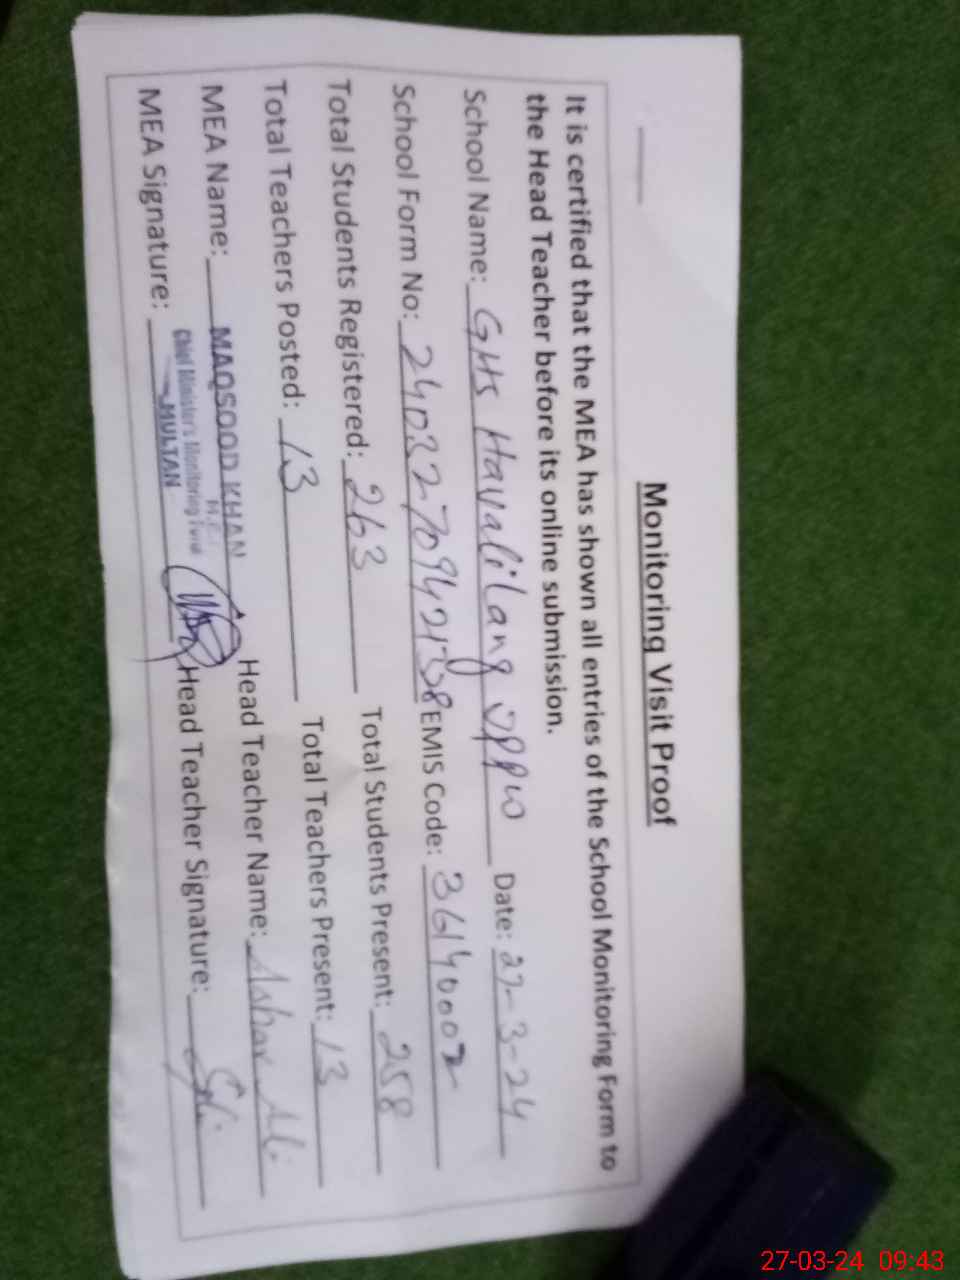 Monitoring Visit Proof
It is certified that the MEA has shown all entries of the School Monitoring Form to
the Head Teacher before its online submission.
School Name: GHS Havalilang Date: 27-3-24
School Form No: EMIS Code: 36140002
Total Students Registered: 263 Total Students Present: 258
Total Teachers Posted: 13 Total Teachers Present: 13
MEA Name: MAQSOOD KHAN Head Teacher Name: Ashar Ali
MEA Signature: Head Teacher Signature:
Chief Minister's Monitoring Force
MULTAN
27-03-24 09:43